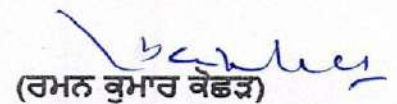 (ਰਮਨ ਕੁਮਾਰ ਕੋਛੜ)